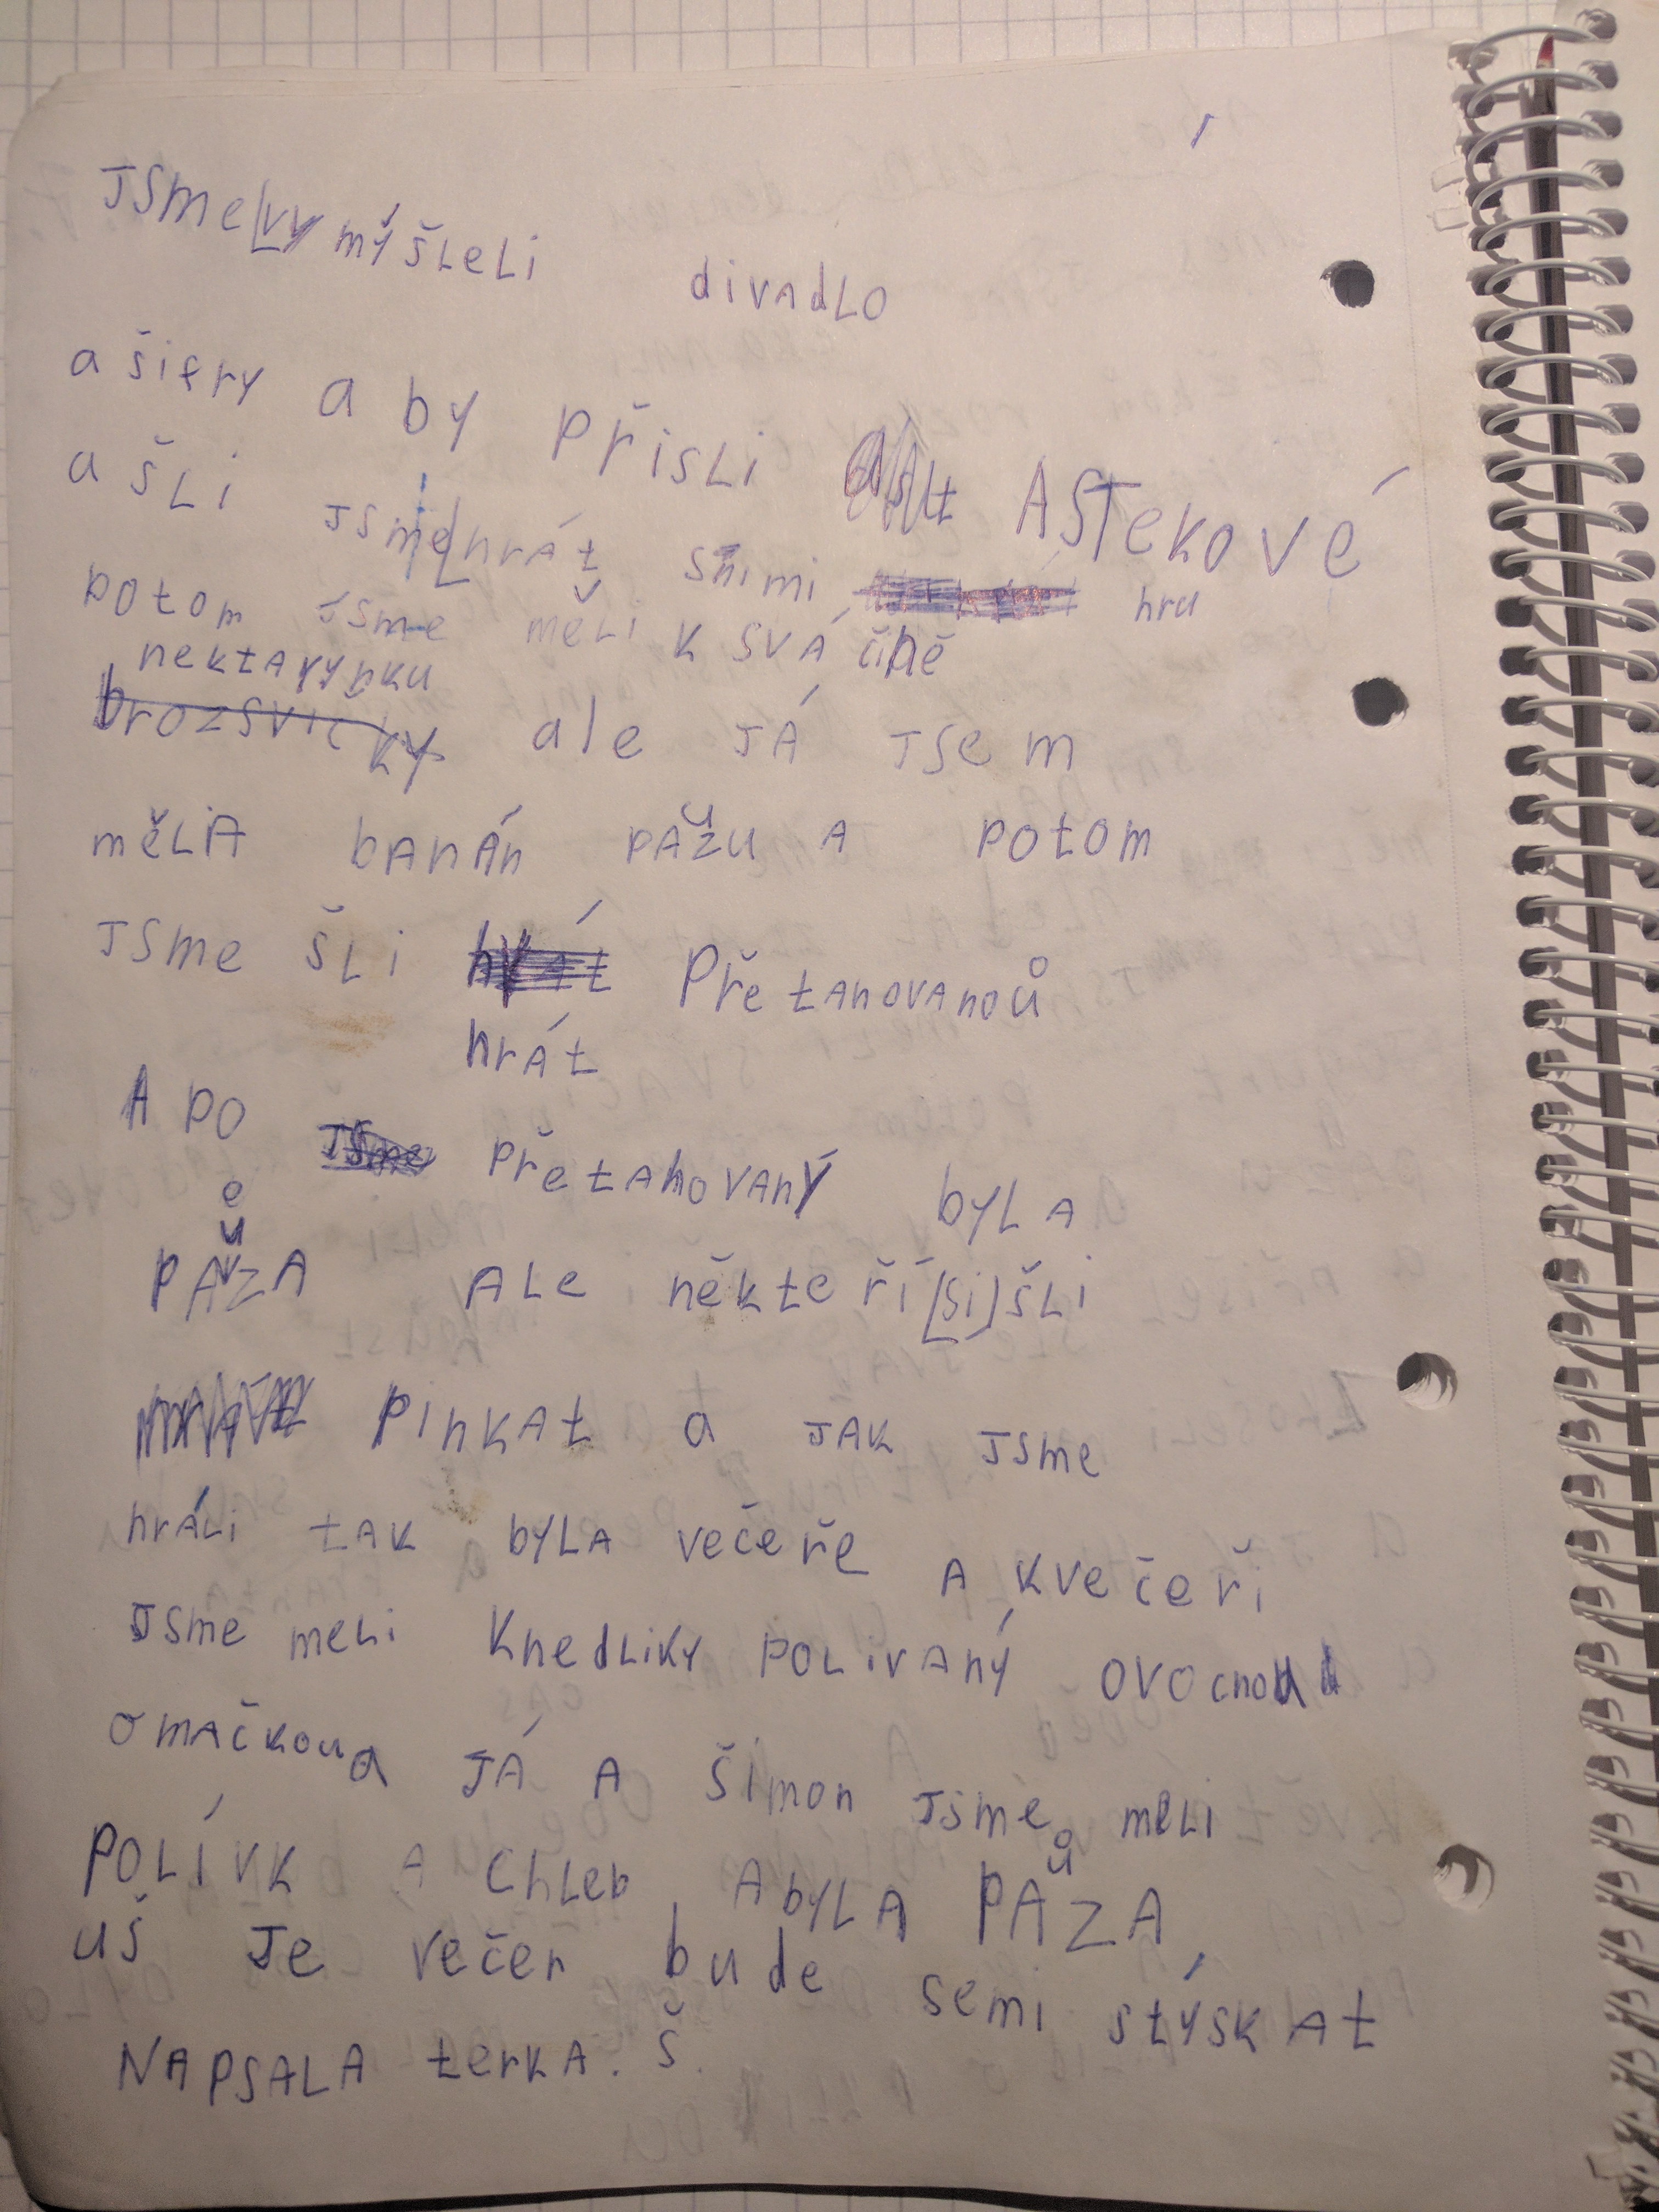 JSme vy mýšLeLi divadLo
a šifry a by PřisLi ASTekové
a šLi JSme hrát snimi hru
potom JSme měLi k SVÁ čině
nektarynku
brozsvičky ale JÁ JSem
měLA bAnÁn pAůzu A potom
JSme šLi hrát PřetAhovAnoů
hrÁt
A po JSme přetAhovAný byLA
pAuzA ALe někteří (si) šLi
pinkAt a JAK JSme
hráLi tAK byLA večeře A kvečeři
JSme meLi KnedLiky poLivAný ovocnou
omAčkou a JÁ A Šimon JSme meLi
poLívk A chLeb, AbyLA PAůzA,
uš Je večer bude semi stýskAt
NAPSALA terkA. Š.